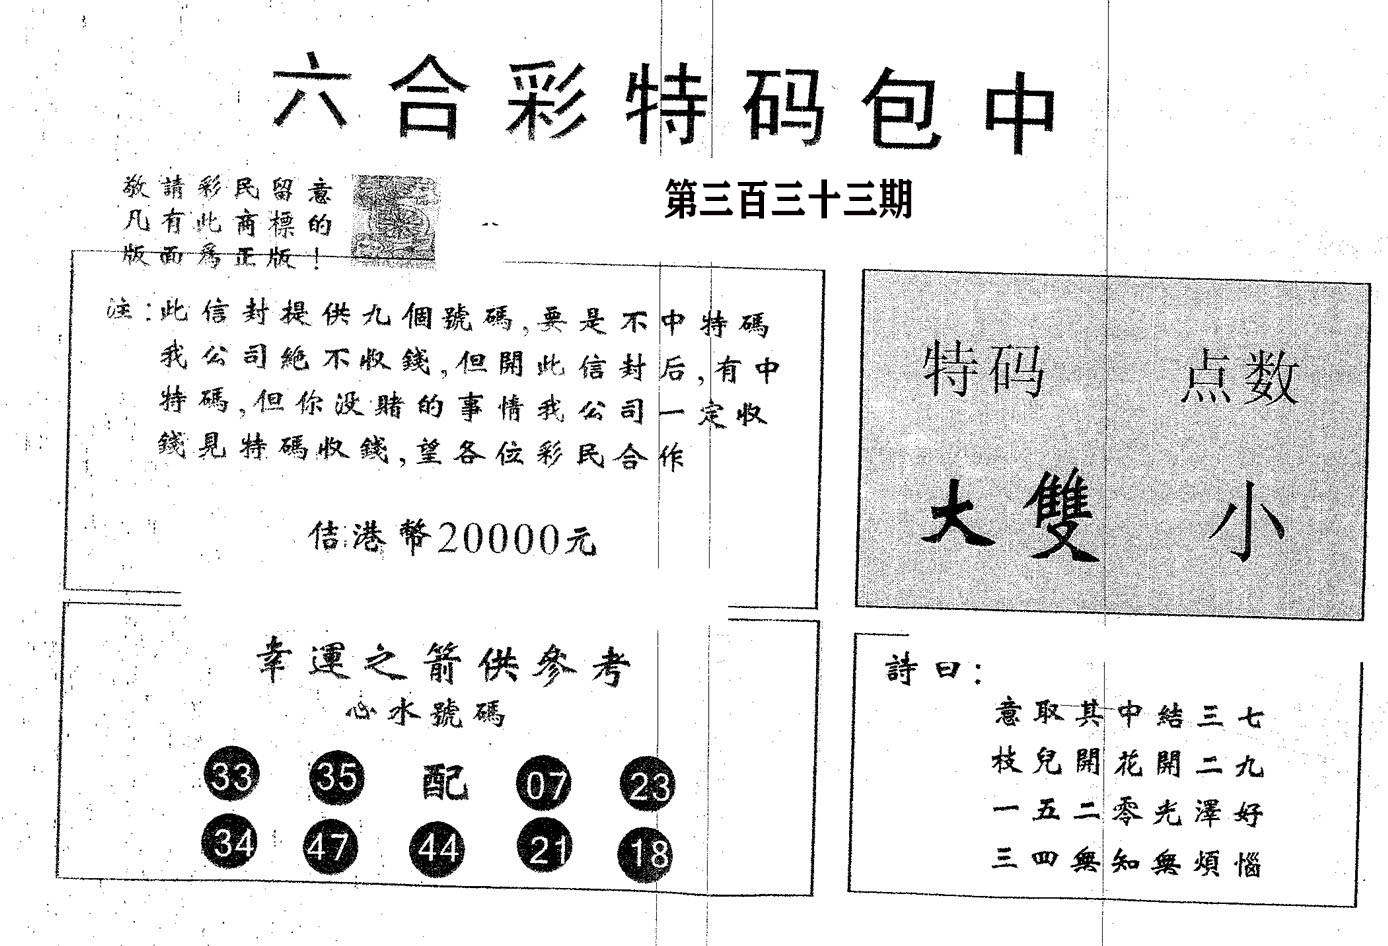 六合彩特码包中
第三百三十三期
敬請彩民留意
凡有此商標的
版面爲正版！
注：此信封提供九個號碼，要是不中特碼
我公司絶不收錢，但開此信封后，有中
特碼，但你没賭的事情我公司一定收
錢見特碼收錢，望各位彩民合作
佶港幣20000元
特码 点数
大雙 小
幸運之箭供參考
心水號碼
33 35 配 07 23
34 47 44 21 18
詩曰：
意取其中結三七
枝兒開花開二九
一五二零光澤好
三四無知無煩惱